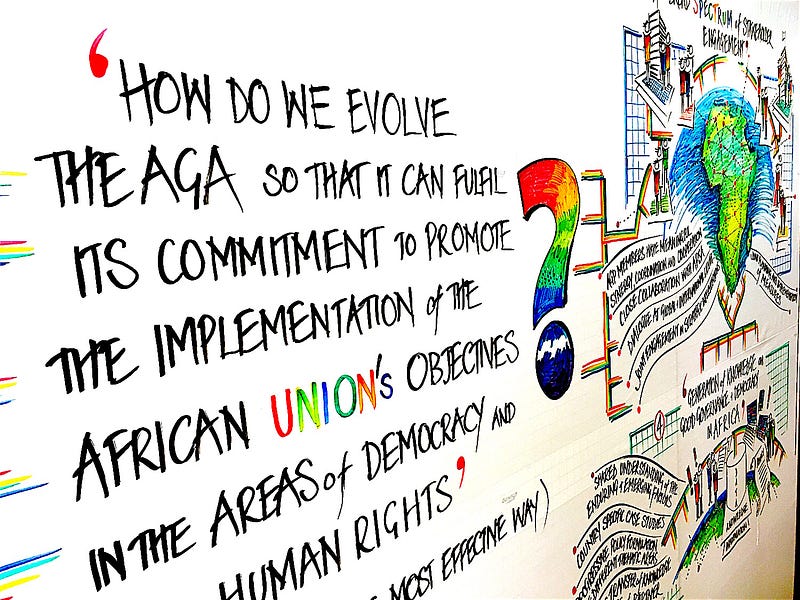 ‘HOW DO WE EVOLVE
THE AGA SO THAT IT CAN FULFIL
ITS COMMITMENT TO PROMOTE
THE IMPLEMENTATION of THE
AFRICAN UNION'S OBJECTIVES
IN THE AREAS of DEMOCRACY AND
HUMAN RIGHTS’
MOST EFFECTIVE WAY)
?
SPECTRUM of STAKEHOLDER
ENGAGEMENT"
MEMBERS HAVE MEANINGFUL
SYNERGY, COORDINATION AND
CLOSE COLLABORATION WITH
DIALOGUE AT
JOINT ENGAGEMENT in
‘GENERATION of KNOWLEDGE on
GOOD GOVERNANCE & DEMOCRACY
IN AFRICA’
4
• SHARED UNDERSTANDING of THE
ENDURING & EMERGING FACTORS
• COUNTRY SPECIAL CASE STUDIES
• PROGRESSIVE POLICY FORMULATION
in DIFFERENT THEMATIC AREAS
• TRANSFER of KNOWLEDGE